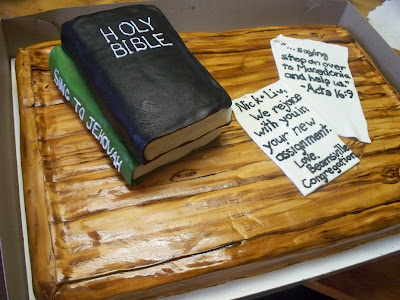 HOLY
BIBLE
SING TO JEHOVAH
"...saying
step on over
to Macedonia
and help us."
-Acts 16:9
Nick + Liv,
We rejoice
with you in
your new
assignment.
Love,
Beamsville
Congregation